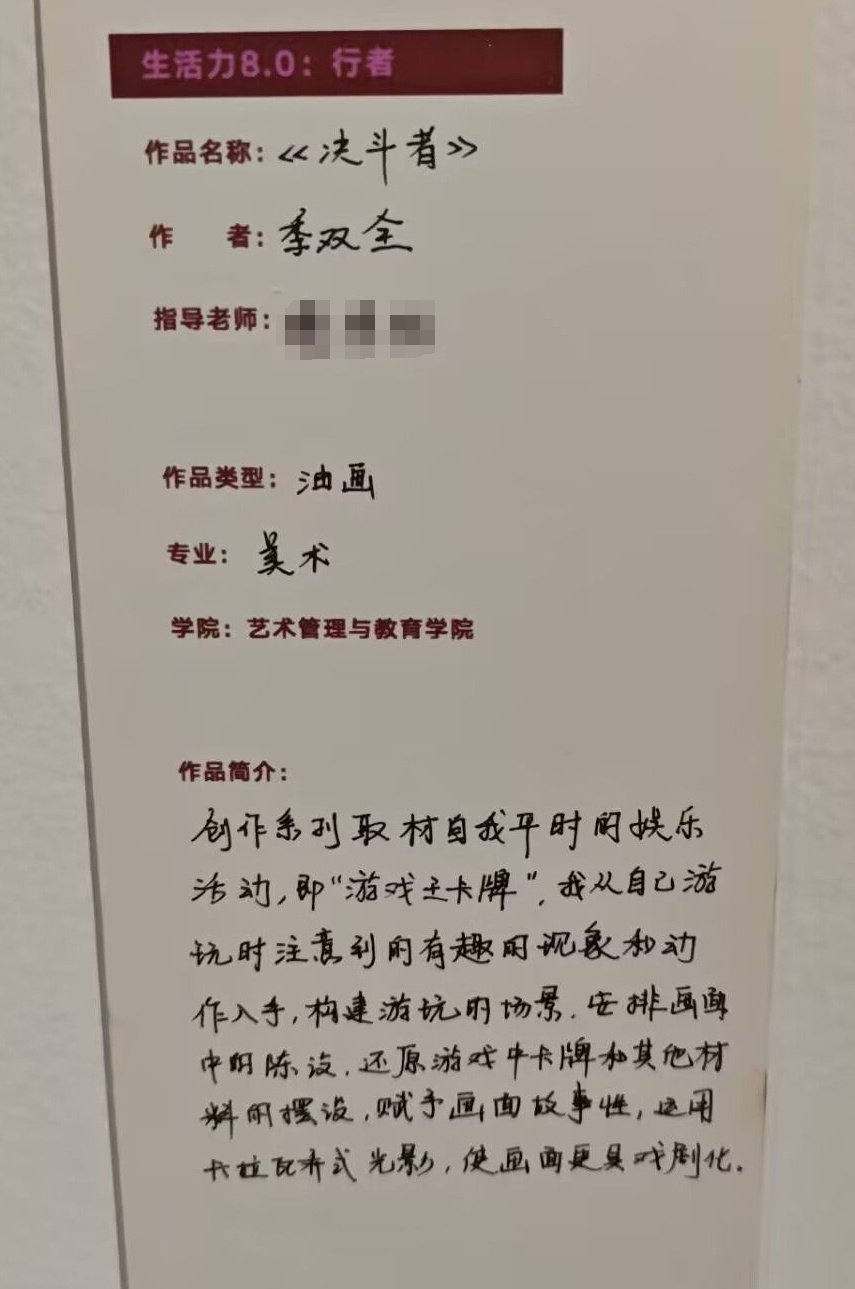 生活力8.0：行者
作品名称：《决斗者》
作 者：季双全
指导老师：
作品类型：油画
专业：美术
学院：艺术管理与教育学院
作品简介：
创作系列取材自我平时的娱乐
活动，即“游戏王卡牌”，我从自己游
玩时注意到的有趣的现象和动
作入手，构建游玩的场景，安排画面
中的陈设，还原游戏中卡牌和其他材
料的摆设，赋予画面故事性，运用
卡拉瓦乔式光影，使画面更具戏剧化。